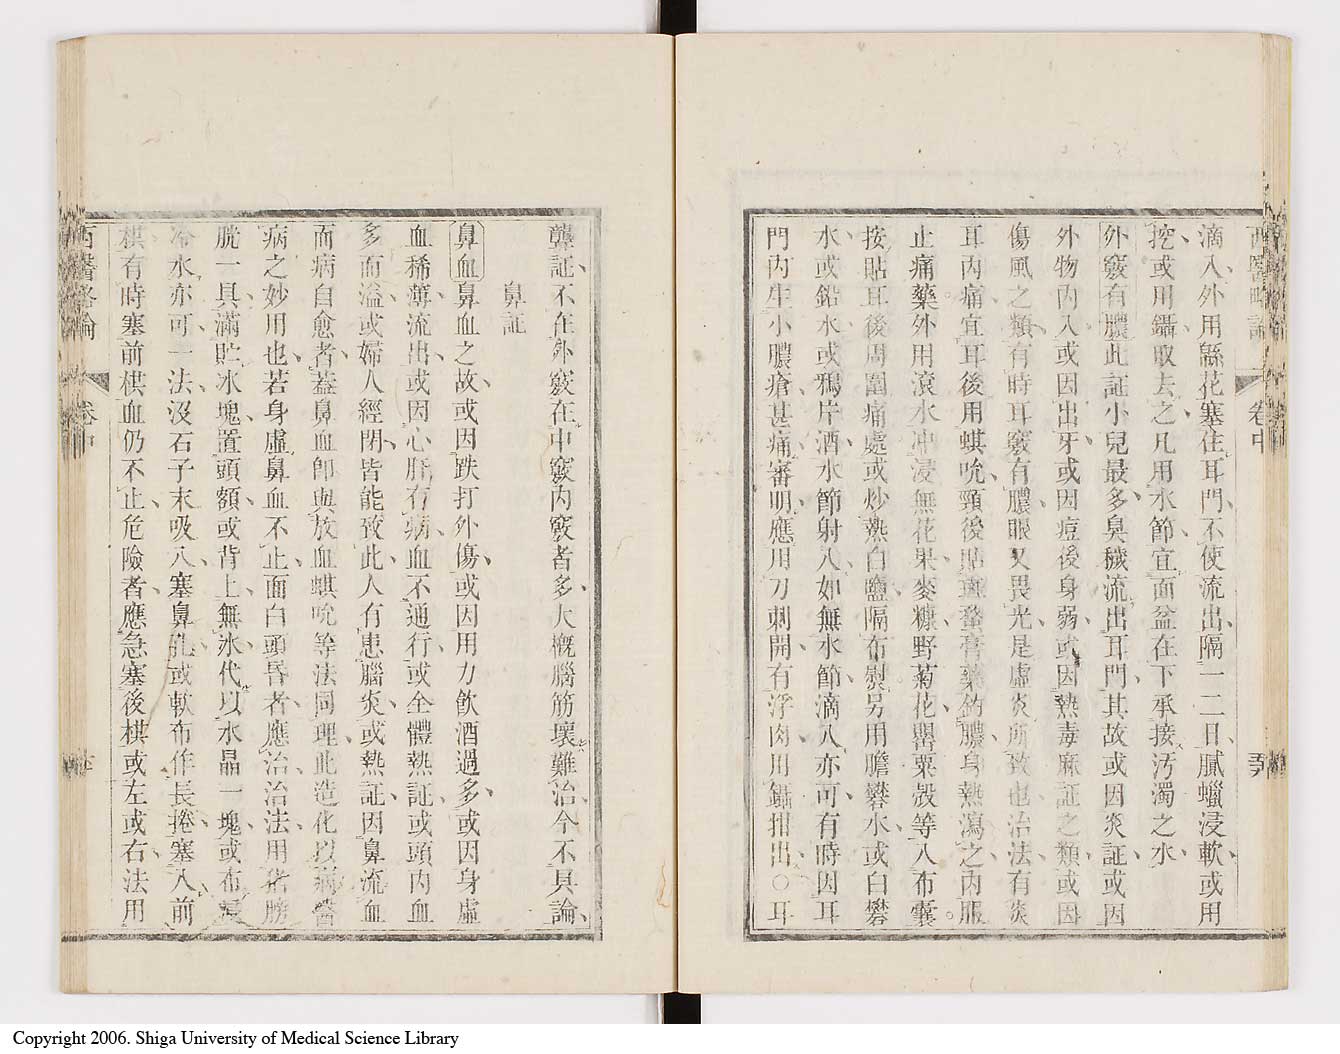 西醫略論 卷中
滴入外用綿花塞住耳門不使流出隔一二日膩蠟浸軟或用
挖或用鑷取去之凡用水節宜面盆在下承接汚濁之水
外竅有膿此証小兒最多臭穢流出耳門其故或因炎証或因
外物內入或因出牙或因痘後身弱或因熱毒麻証之類或因
傷風之類有時耳竅有膿眼又畏光是虛炎所致也治法有炎
耳內痛宜耳後用蜞吮頸後貼斑蝥膏藥釣膿身熱瀉之內服
止痛藥外用滾水冲浸無花果麥糠野菊花罌粟殼等入布囊
按貼耳後周圍痛處或炒熱白鹽隔布熨另用膽礬水或白礬
水或鉛水或鴉片酒水節射入如無水節滴入亦可有時因耳
門內生小膿瘡甚痛審明應用刀刺開有浮肉用鑷拑出○耳
聾証不在外竅在中竅內竅者多大槪腦筋壞難治今不具論
鼻証
鼻血鼻血之故或因跌打外傷或因用力飮酒過多或因身虛
血稀薄流出或因心肝有病血不通行或全體熱証或頭內血
多而溢或婦人經閉皆能致此人有患腦炎或熱証因鼻流血
而病自愈者蓋鼻血卽與放血蜞吮等法同理此造化以病醫
病之妙用也若身虛鼻血不止面白頭昏者應治治法用猪膀
脫一具滿貯冰塊置頭額或背上無氷代以水晶一塊或布浸
冷水亦可一法沒石子末吸入塞鼻孔或軟布作長捲塞入前
棋有時塞前棋血仍不止危險者應急塞後棋或左或右法用
西醫略論 卷中
Copyright 2006. Shiga University of Medical Science Library